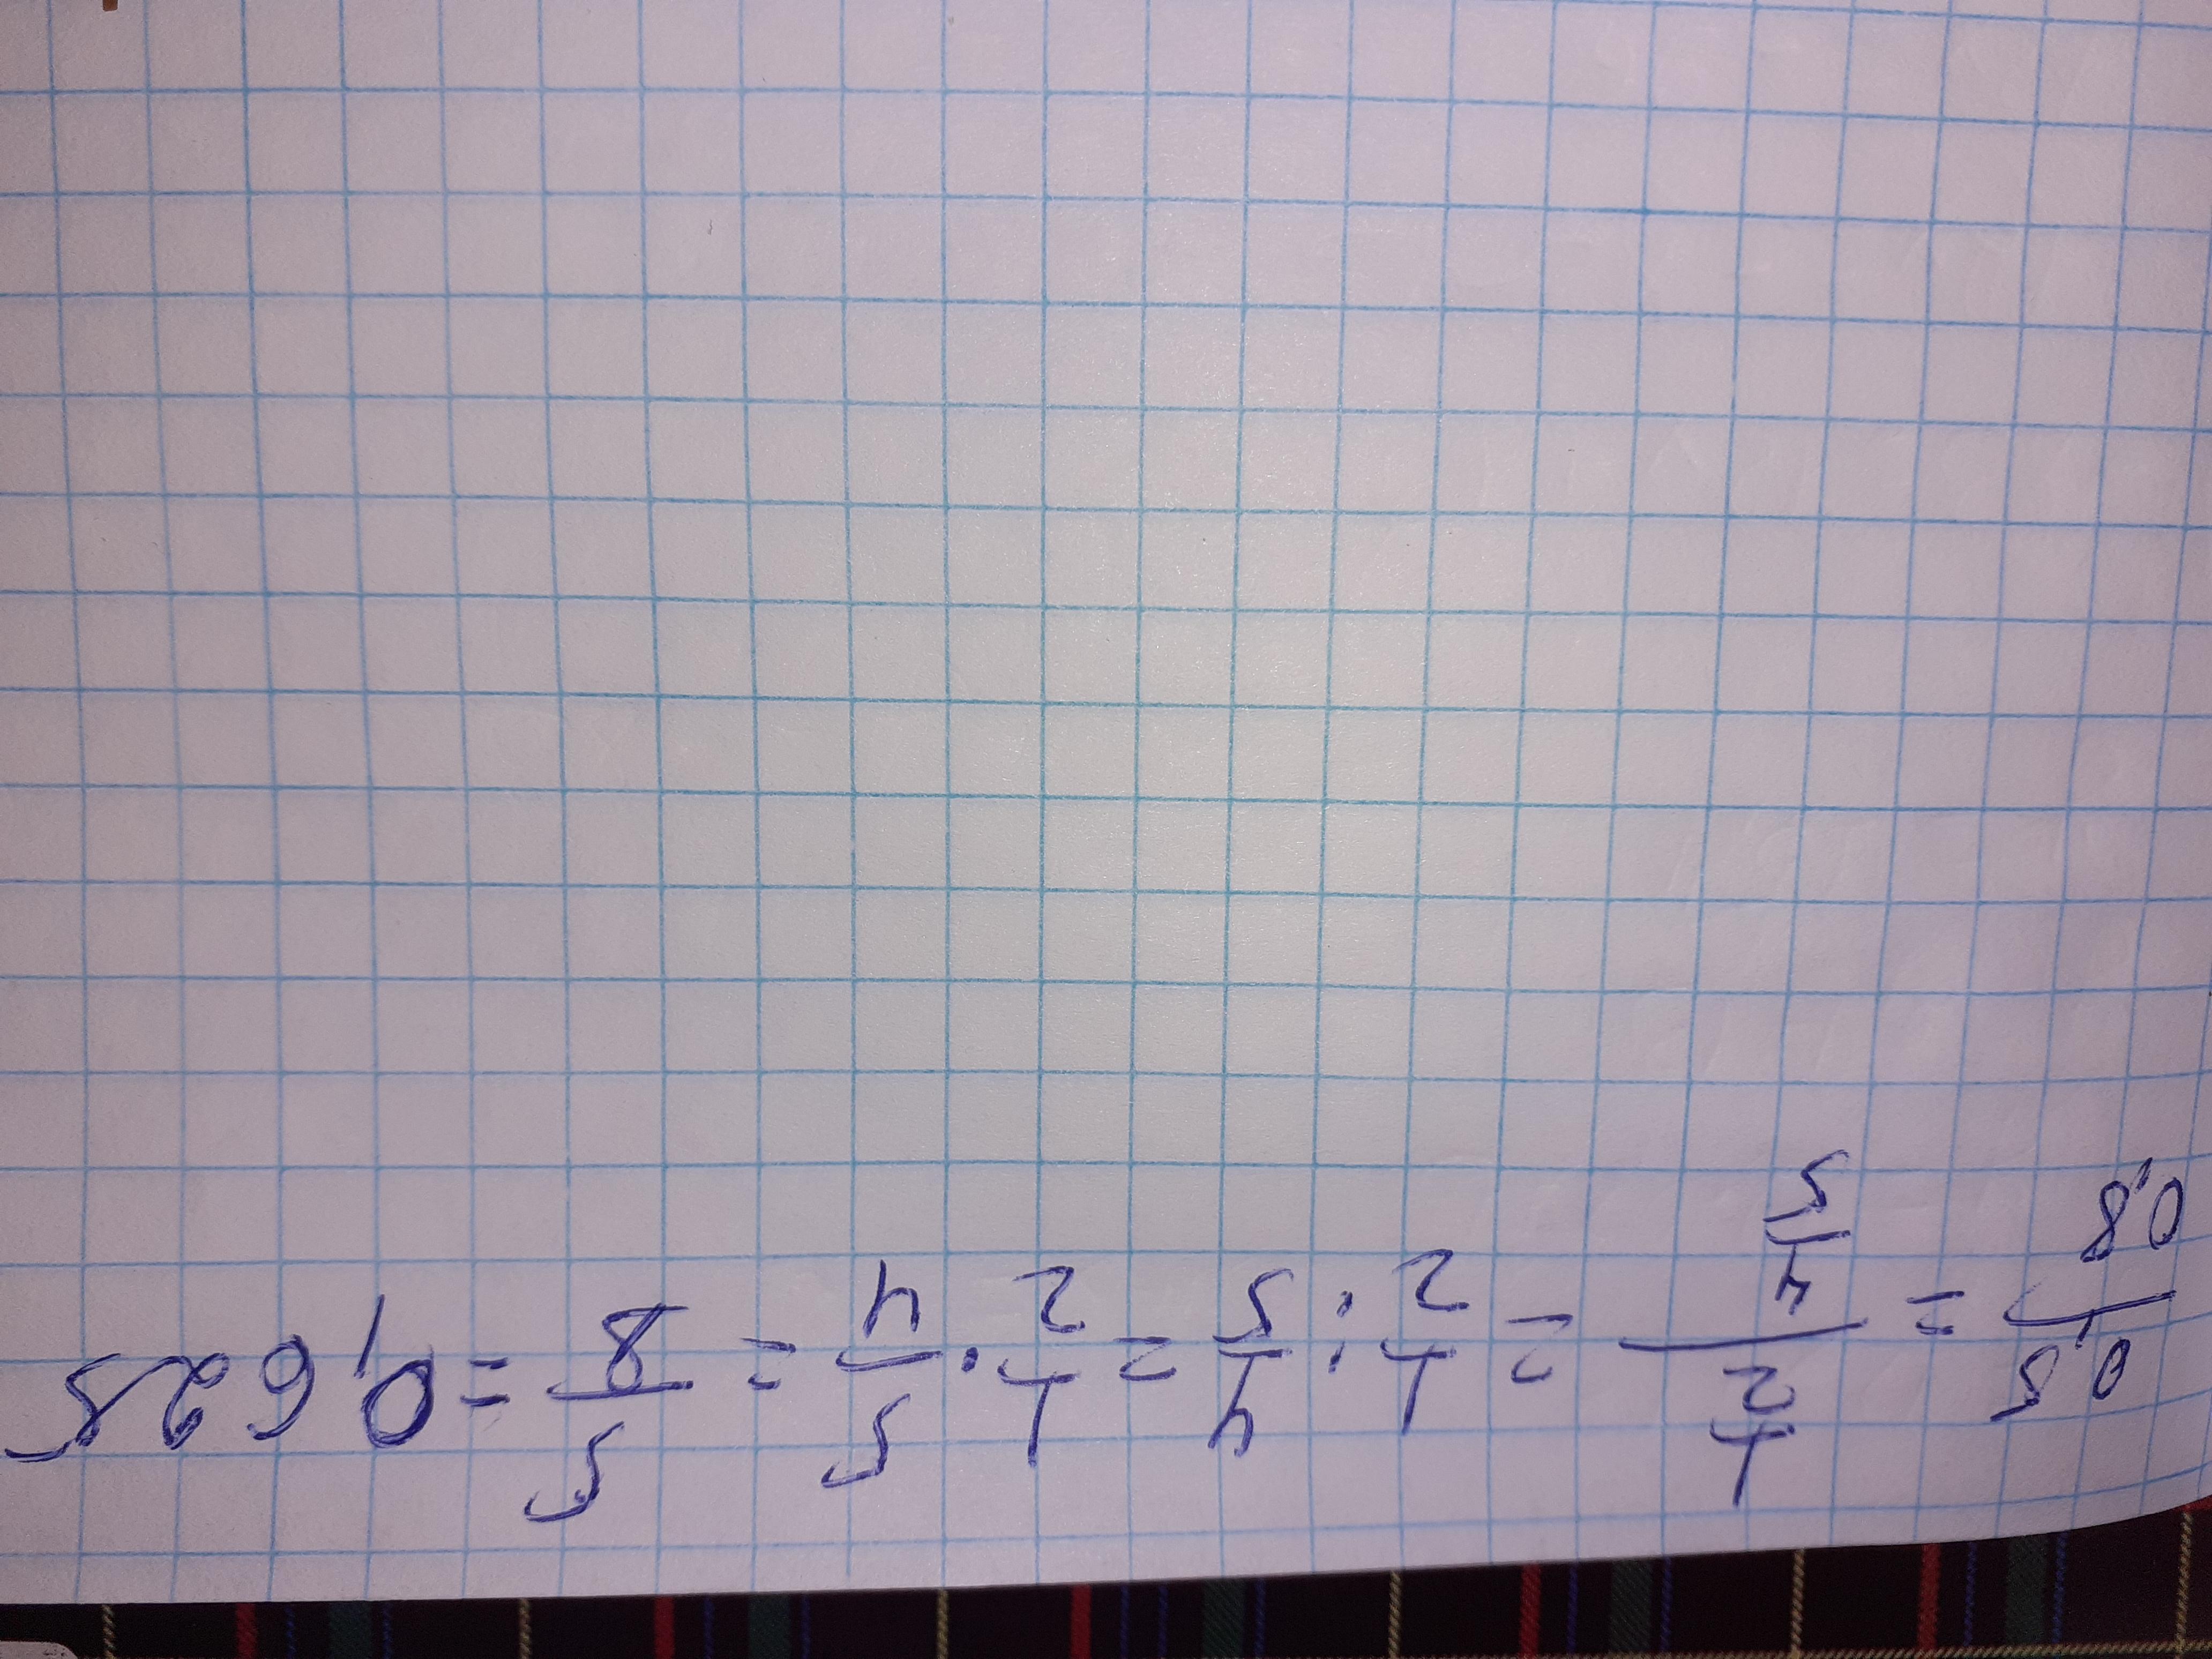 0,5/0,8 = (1/2)/(4/5) = 1/2 : 4/5 = 1/2 · 5/4 = 5/8 = 0,625